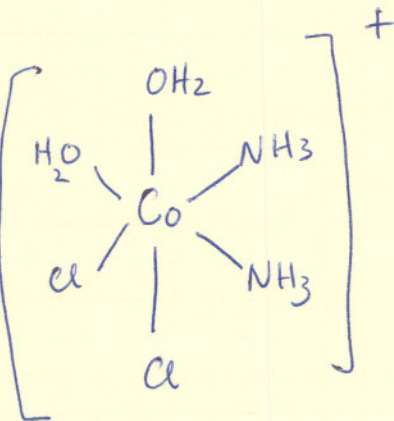 +
OH2
H2O NH3
Co
Cl NH3
Cl